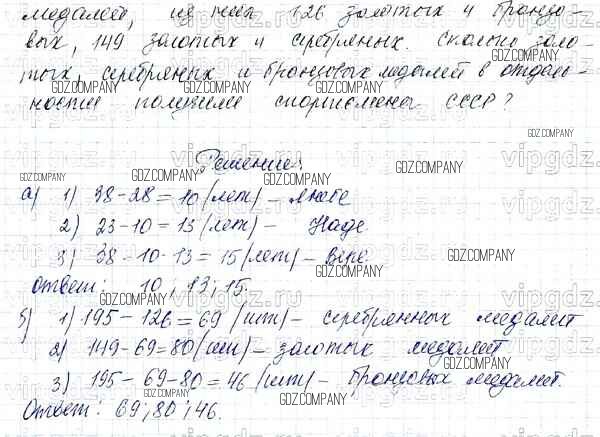 медалей, из них 126 золотых и бронзо-
вых, 149 золотых и серебряных. Сколько золо-
тых, серебряных и бронзовых медалей в отдель-
ности получили спортсмены СССР?
Решение:
а) 1) 38-28=10 (лет) - Любе
2) 23-10=13 (лет) - Наде
3) 38-10-13=15 (лет) - Вере
Ответ: 10; 13; 15.
б) 1) 195-126=69 (шт) - серебрянных медалей
2) 149-69=80 (шт) - золотых медалей
3) 195-69-80=46 (шт) - бронзовых медалей.
Ответ: 69; 80; 46.
GDZ.COMPANY
vipgdz.ru